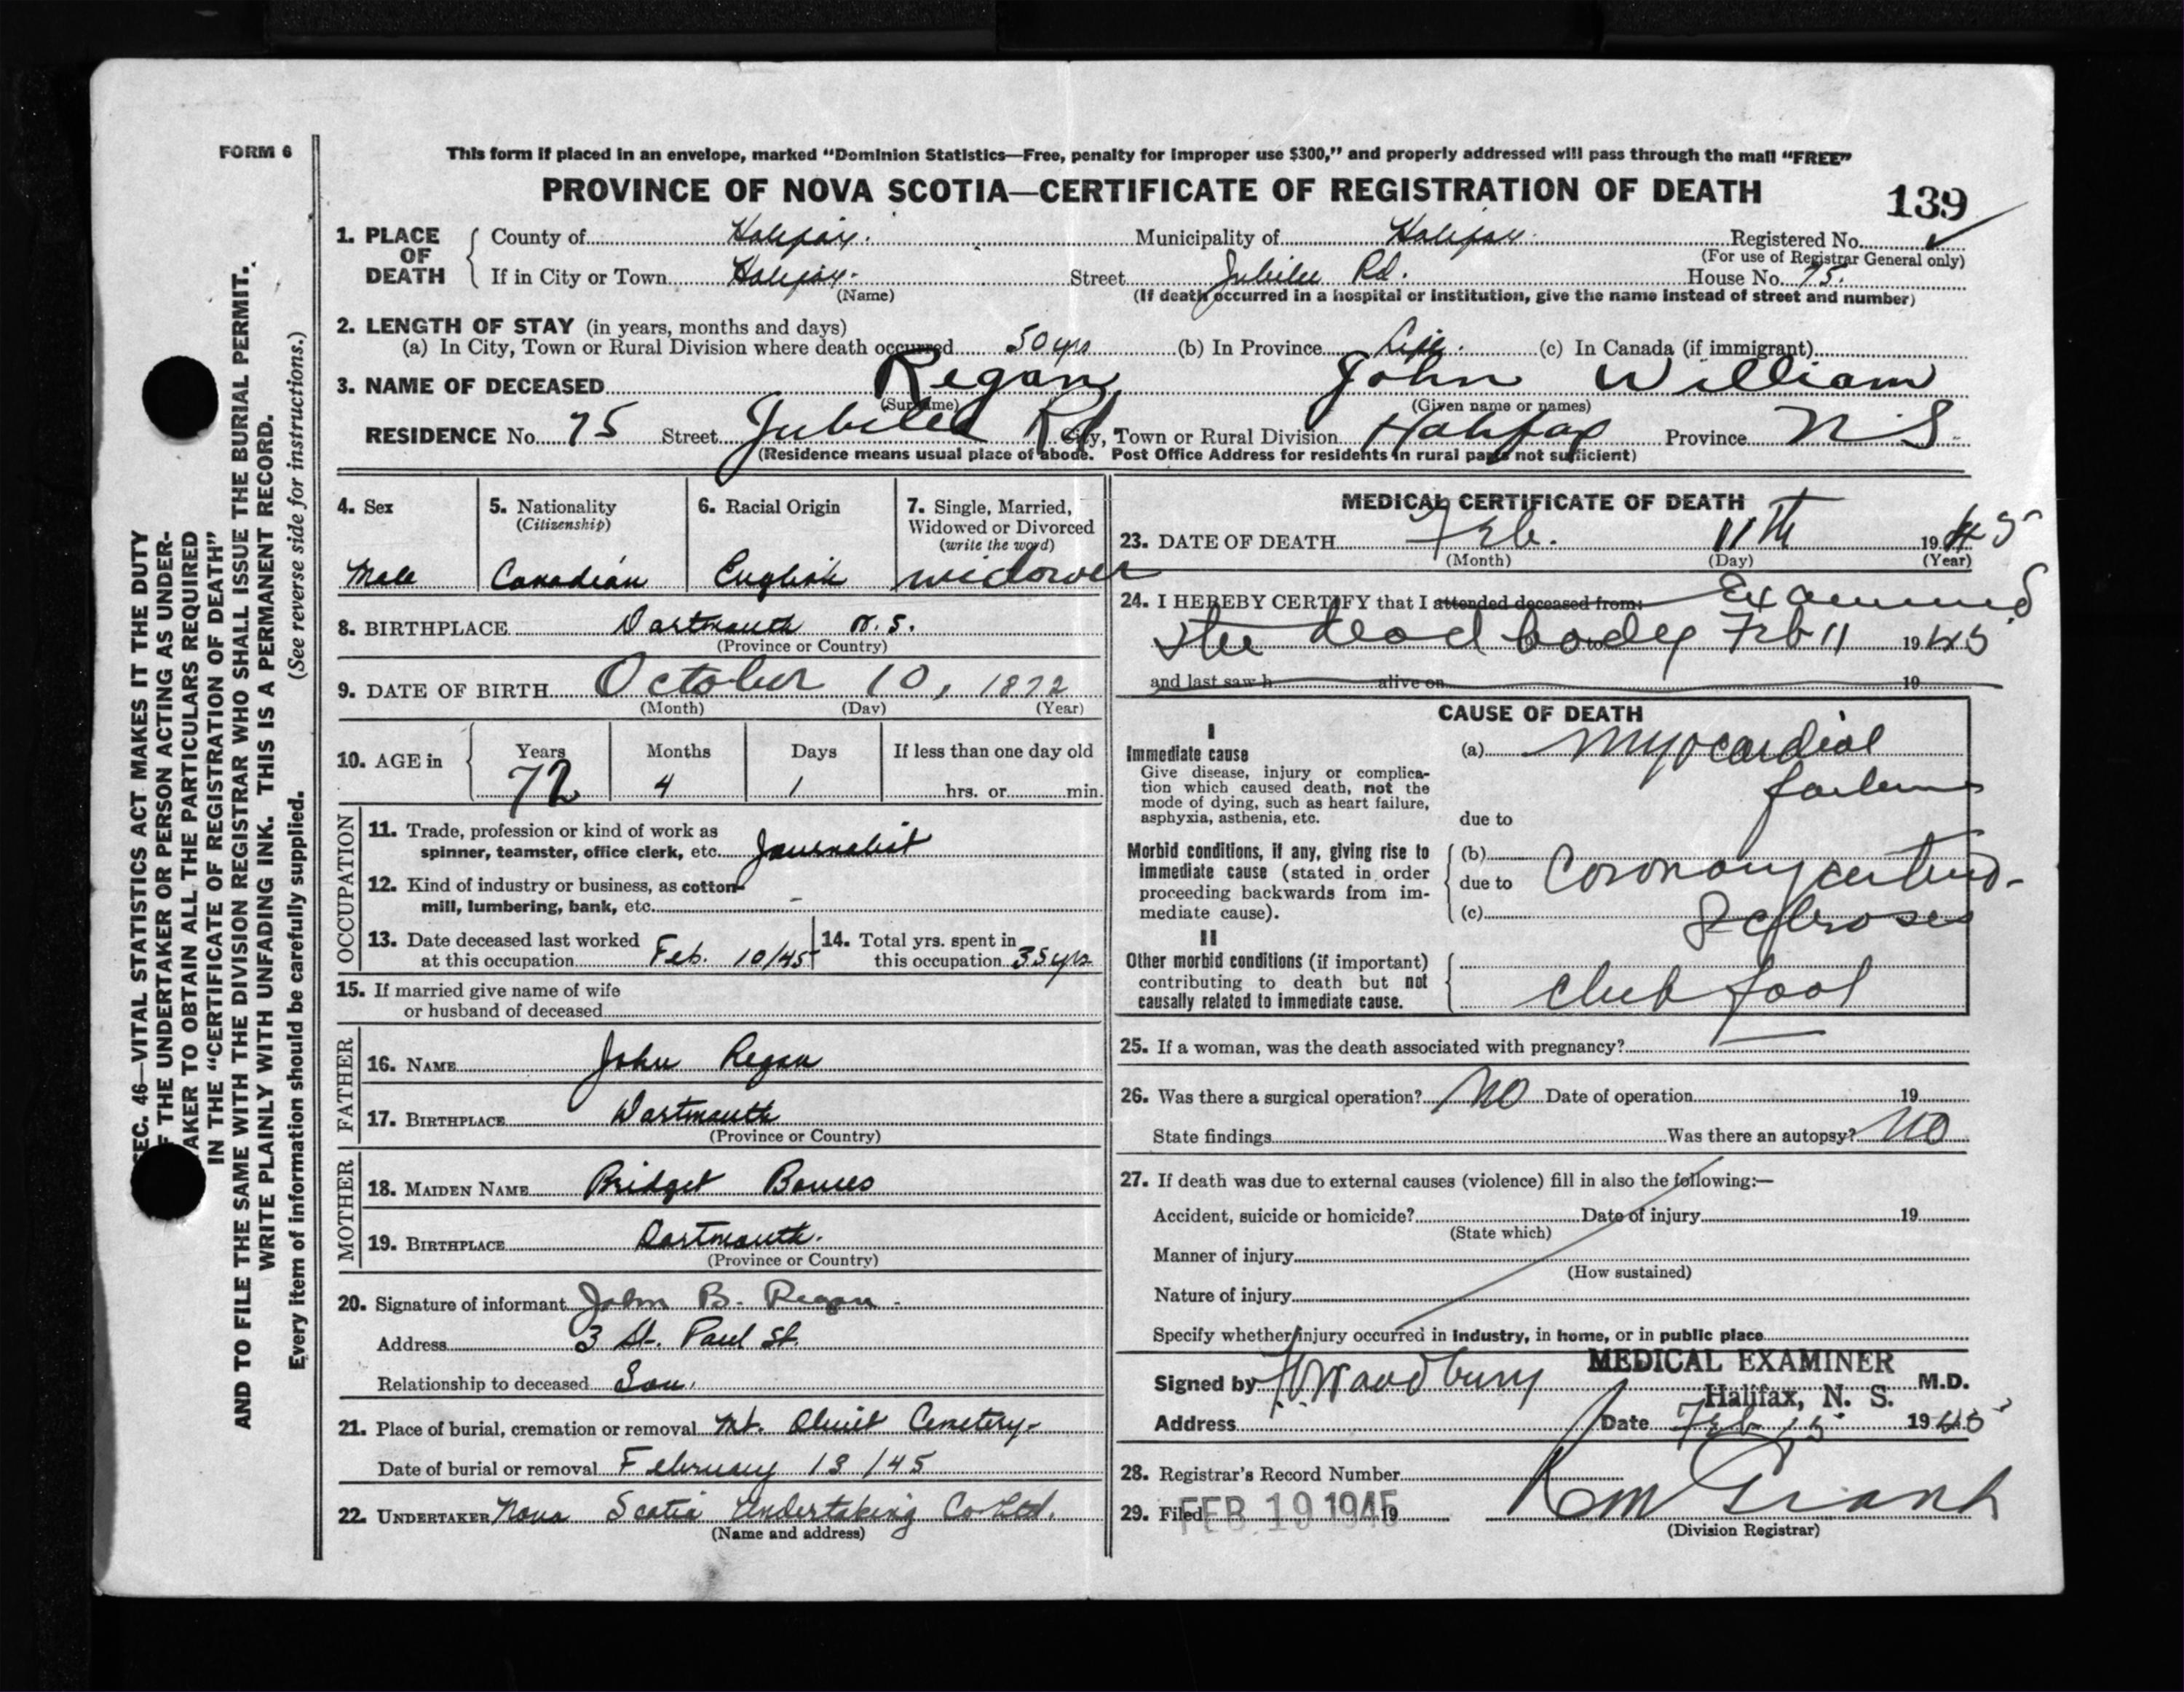 FORM 6
This form if placed in an envelope, marked “Dominion Statistics—Free, penalty for improper use $300,” and properly addressed will pass through the mail “FREE”
PROVINCE OF NOVA SCOTIA—CERTIFICATE OF REGISTRATION OF DEATH
139
1. PLACE OF DEATH
County of Halifax. Municipality of Halifax. Registered No.
(For use of Registrar General only)
If in City or Town Halifax. Street Jubilee Rd. House No. 75.
(Name) (If death occurred in a hospital or institution, give the name instead of street and number)
2. LENGTH OF STAY (in years, months and days)
(a) In City, Town or Rural Division where death occurred 50 yrs (b) In Province Life. (c) In Canada (if immigrant)
3. NAME OF DECEASED Regan John William
(Surname) (Given name or names)
RESIDENCE No. 75 Street Jubilee Rd City, Town or Rural Division Halifax Province N S.
(Residence means usual place of abode. Post Office Address for residents in rural parts not sufficient)
4. Sex
Male
5. Nationality
(Citizenship)
Canadian
6. Racial Origin
English
7. Single, Married,
Widowed or Divorced
(write the word)
widower
8. BIRTHPLACE Dartmouth N.S.
(Province or Country)
9. DATE OF BIRTH October 10, 1872
(Month) (Day) (Year)
10. AGE in
Years Months Days If less than one day old
72 4 1 hrs. or min.
OCCUPATION
11. Trade, profession or kind of work as
spinner, teamster, office clerk, etc. Journalist
12. Kind of industry or business, as cotton-
mill, lumbering, bank, etc. -
13. Date deceased last worked
at this occupation Feb. 10/45
14. Total yrs. spent in
this occupation 35 yrs
15. If married give name of wife
or husband of deceased
FATHER
16. NAME John Regan
17. BIRTHPLACE Dartmouth
(Province or Country)
MOTHER
18. MAIDEN NAME Bridget Bowes
19. BIRTHPLACE Dartmouth.
(Province or Country)
20. Signature of informant John B. Regan.
Address 3 St. Paul St.
Relationship to deceased Son.
21. Place of burial, cremation or removal Mt. Olivet Cemetery.
Date of burial or removal February 13/45
22. UNDERTAKER Nova Scotia Undertaking Co Ltd.
(Name and address)
MEDICAL CERTIFICATE OF DEATH
23. DATE OF DEATH Feb. 11th 1945
(Month) (Day) (Year)
24. I HEREBY CERTIFY that I attended deceased from: Examined
the dead body to Feb 11 1945
and last saw h alive on 19
CAUSE OF DEATH
I
Immediate cause
Give disease, injury or complica-
tion which caused death, not the
mode of dying, such as heart failure,
asphyxia, asthenia, etc.
(a) Myocardial
failure
due to
Morbid conditions, if any, giving rise to
immediate cause (stated in order
proceeding backwards from im-
mediate cause).
(b)
due to Coronary arterio-
(c) Sclerosis
II
Other morbid conditions (if important)
contributing to death but not
causally related to immediate cause.
club foot
25. If a woman, was the death associated with pregnancy?
26. Was there a surgical operation? NO Date of operation 19
State findings Was there an autopsy? NO
27. If death was due to external causes (violence) fill in also the following:—
Accident, suicide or homicide? Date of injury 19
(State which)
Manner of injury
(How sustained)
Nature of injury
Specify whether injury occurred in industry, in home, or in public place
MEDICAL EXAMINER
Signed by Woodbury M.D.
Halifax, N. S.
Address Date Feb 15 1945
28. Registrar's Record Number
29. Filed FEB 19 1945 19 Grant
(Division Registrar)
SEC. 46—VITAL STATISTICS ACT MAKES IT THE DUTY
OF THE UNDERTAKER OR PERSON ACTING AS UNDER-
TAKER TO OBTAIN ALL THE PARTICULARS REQUIRED
IN THE “CERTIFICATE OF REGISTRATION OF DEATH”
AND TO FILE THE SAME WITH THE DIVISION REGISTRAR WHO SHALL ISSUE THE BURIAL PERMIT.
WRITE PLAINLY WITH UNFADING INK. THIS IS A PERMANENT RECORD.
Every item of information should be carefully supplied. (See reverse side for instructions.)